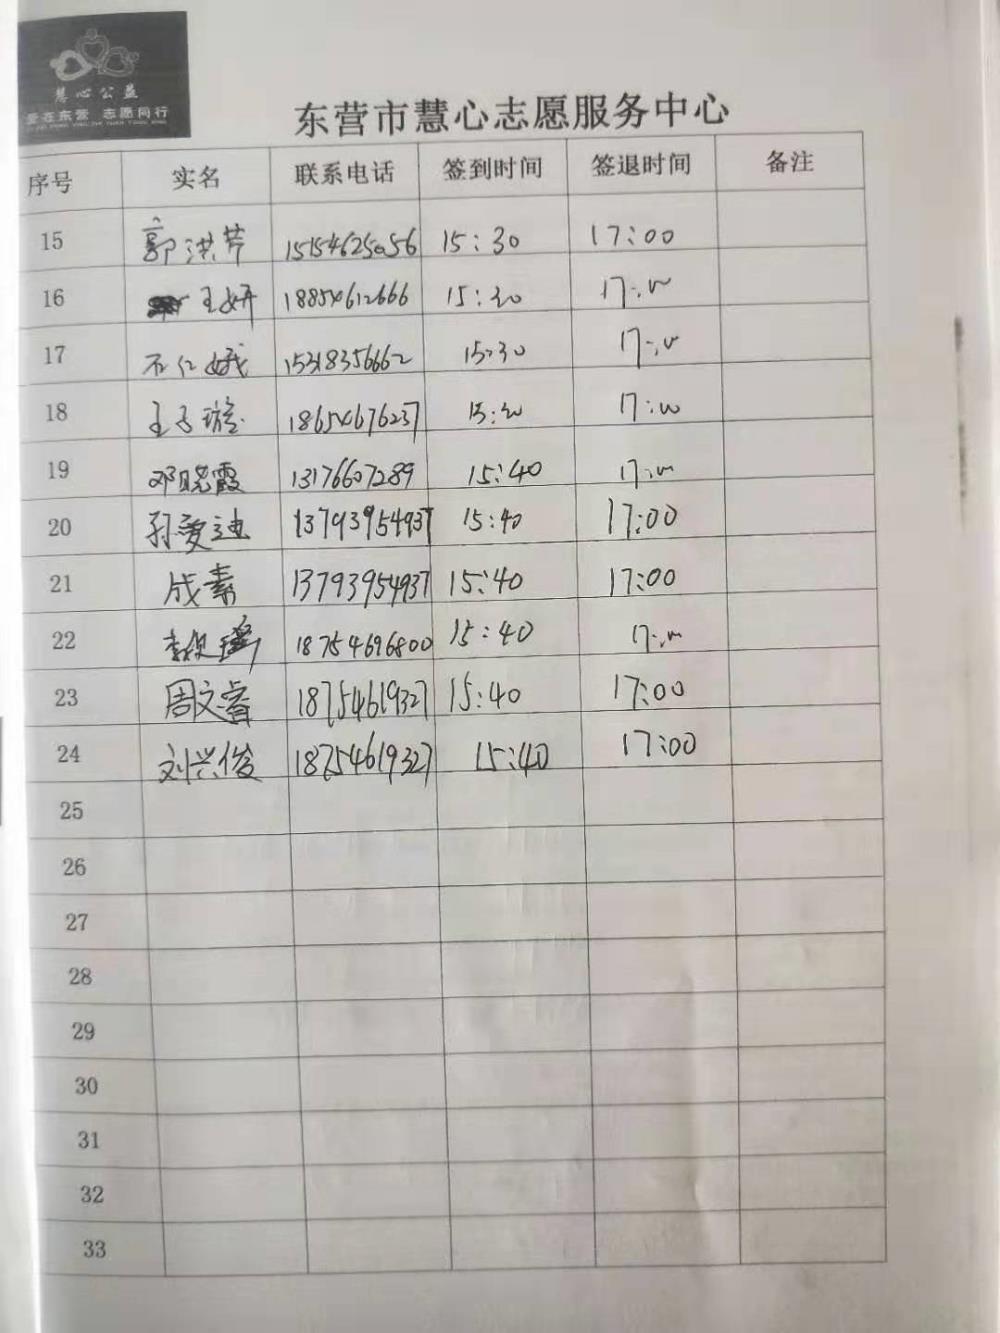 慧心公益
爱在东营 志愿同行
东营市慧心志愿服务中心
序号 实名 联系电话 签到时间 签退时间 备注
15 郭洪芹 15154625056 15:30 17:00
16 王妍 18854612666 15:30 17:00
17 石仁娥 15318356662 15:30 17:00
18 王子璇 18654676237 15:30 17:00
19 邓晓霞 13176607289 15:40 17:00
20 孙爱迪 13793954937 15:40 17:00
21 成素 13793954937 15:40 17:00
22 18754696800 15:40 17:00
23 周文睿 18754619327 15:40 17:00
24 刘兴俊 18754619327 15:40 17:00
25
26
27
28
29
30
31
32
33